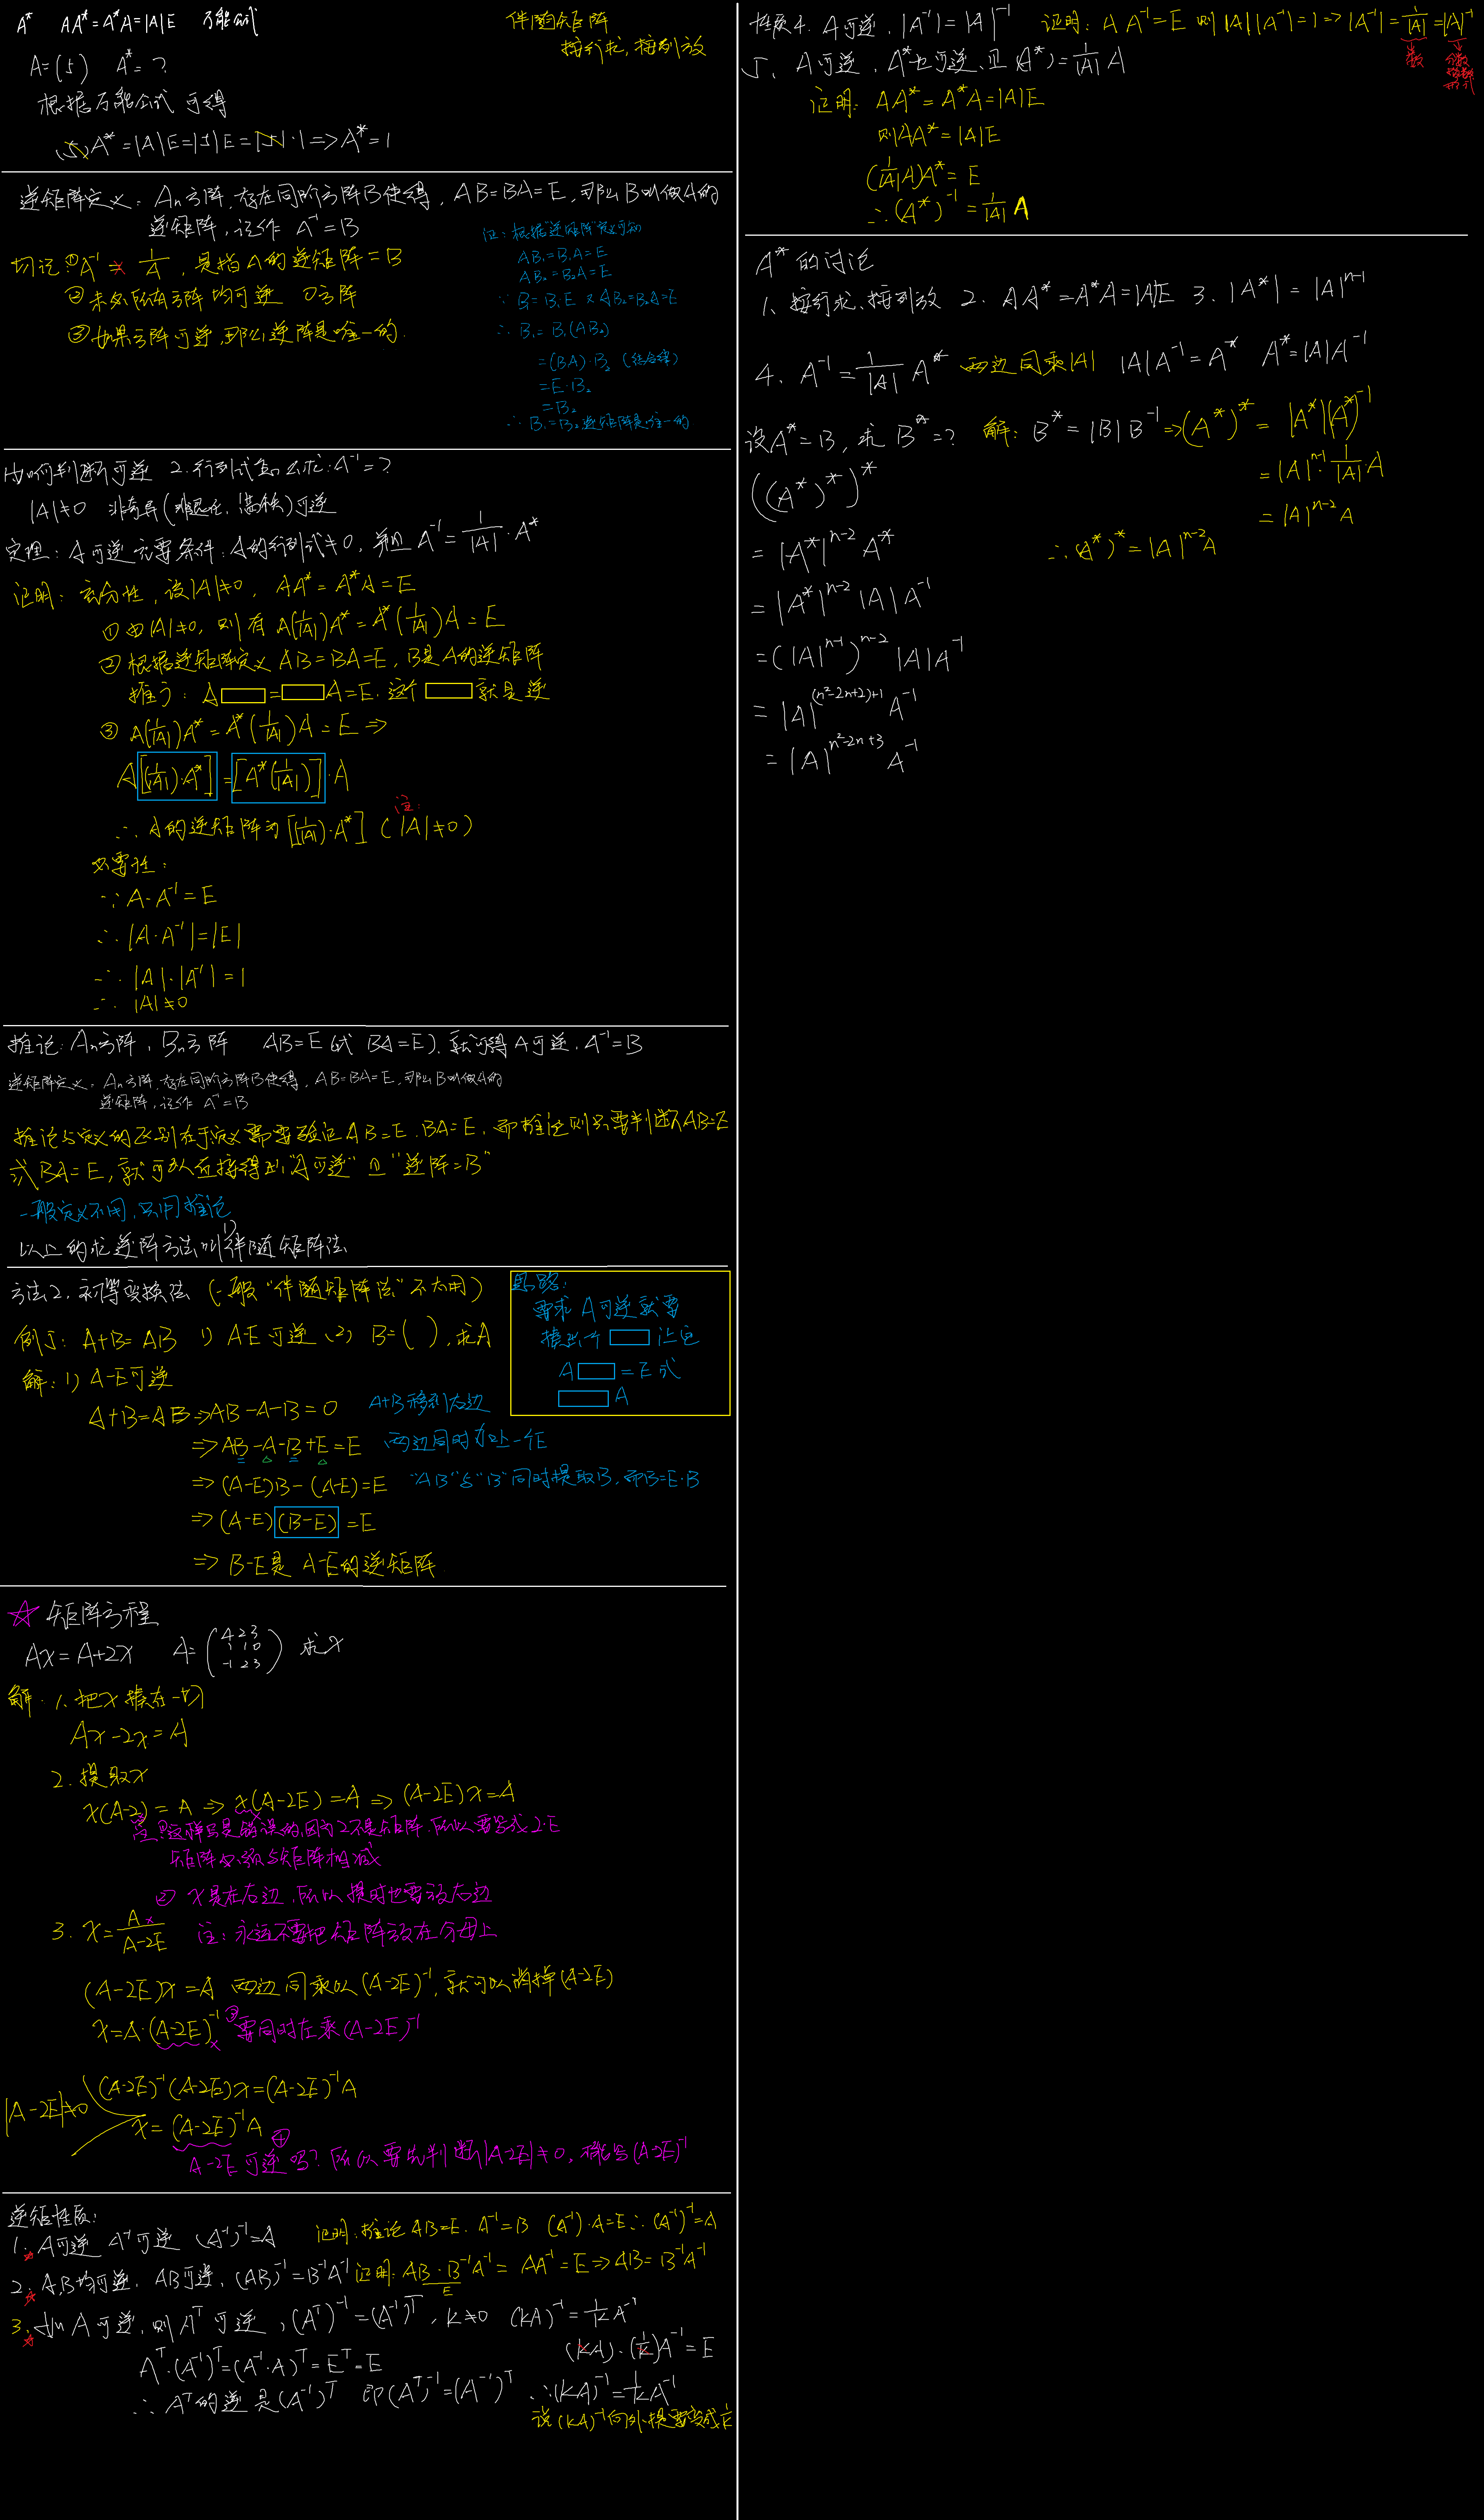 A* AA*=A*A=|A|E 万能公式
伴随矩阵
按行求,按列放
A=(5) A*=?
根据万能公式 可得
(5)A*=|A|E=|5|E=|5|·1=>A*=1
逆矩阵定义: An方阵,存在同阶方阵B使得, AB=BA=E, 那么B叫做A的
逆矩阵,记作 A⁻¹=B
切记:①A⁻¹ = 1/A , 是指A的逆矩阵=B
②未必所有方阵均可逆 0方阵
③如果方阵可逆,那么逆阵是唯一的.
证:根据"逆矩阵"定义可知
AB₁=B₁A=E
AB₂=B₂A=E
∵ B₁=B₁·E 又AB₂=B₂A=E
∴ B₁=B₁(AB₂)
=(BA)·B₂ (结合律)
=E·B₂
=B₂
∴ B₁=B₂逆矩阵是唯一的
1.如何判断可逆 2.行列式怎么求:A⁻¹=?
|A|≠0 非奇异(非退化,满秩)可逆
定理: A可逆充要条件: A的行列式≠0, 并且 A⁻¹=1/|A|·A*
证明: 充分性, 设|A|≠0, AA*=A*A=E
①由|A|≠0, 则有 A(1/|A|)A*=A*(1/|A|)A=E
②根据逆矩阵定义 AB=BA=E, B是A的逆矩阵
推广: A□=□A=E. 这个□就是逆
③ A(1/|A|)A*=A*(1/|A|)A=E =>
A[(1/|A|)·A*]=[A*(1/|A|)]·A
∴ A的逆矩阵为[(1/|A|)·A*] (|A|≠0)
注:
必要性:
∵A·A⁻¹=E
∴|A·A⁻¹|=|E|
∴|A|·|A⁻¹|=1
∴ |A|≠0
推论: An方阵, Bn方阵 AB=E(或 BA=E). 就可得A可逆, A⁻¹=B
逆矩阵定义: An方阵,存在同阶方阵B使得, AB=BA=E, 那么B叫做A的
逆矩阵,记作 A⁻¹=B
推论与定义的区别在于定义需要验证AB=E,BA=E, 而推论则只需判断AB=E
或BA=E, 就可以直接得到"A可逆"且"逆阵=B"
一般定义不用,只用推论
以上的求逆阵方法叫1)伴随矩阵法
方法2. 初等变换法 (一般"伴随矩阵法"不太用)
例5: A+B=AB 1) A-E可逆 (2) B=( ), 求A
思路:
要求A可逆就要
凑出个□让它
A□=E或
□A
解: 1) A-E可逆
A+B=AB=>AB-A-B=0 A+B移到右边
=>AB-A-B+E=E 两边同时加上一个E
=> (A-E)B-(A-E)=E "AB"与"B"同时提取B, 而B=E·B
=> (A-E)(B-E)=E
=> B-E是 A-E的逆矩阵.
☆ 矩阵方程
AX=A+2X A=(4 2 3
1 1 0
-1 2 3) 求X
解: 1. 把X摆在一切
AX-2X=A
2. 提取X
X(A-2)=A => X(A-2E)=A => (A-2E)X=A
注①这样写是错误的,因为2不是矩阵.所以要写成2·E
矩阵必须与矩阵相减
② X是在右边,所以提时也要放右边
3. X=A/(A-2E) 注: 永远不要把矩阵放在分母上
(A-2E)X=A 两边同乘以(A-2E)⁻¹, 就可以消掉(A-2E)
X=A·(A-2E)⁻¹ ③要同时左乘(A-2E)⁻¹
|A-2E|≠0 (A-2E)⁻¹(A-2E)X=(A-2E)⁻¹A
X=(A-2E)⁻¹A
④ A-2E可逆吗? 所以要先判断|A-2E|≠0, 才能写(A-2E)⁻¹
逆矩性质:
1. A可逆 A⁻¹可逆 (A⁻¹)⁻¹=A 证明:推论AB=E. A⁻¹=B (A⁻¹)·A=E∴(A⁻¹)⁻¹=A
2. A,B均可逆, AB可逆, (AB)⁻¹=B⁻¹A⁻¹ 证明:AB·B⁻¹A⁻¹=AA⁻¹=E=>AB=B⁻¹A⁻¹
E
3. 如A可逆, 则Aᵀ可逆, (Aᵀ)⁻¹=(A⁻¹)ᵀ, K≠0 (KA)⁻¹=1/K A⁻¹
Aᵀ·(A⁻¹)ᵀ=(A⁻¹·A)ᵀ=Eᵀ=E (KA)·(1/K)A⁻¹=E
∴ Aᵀ的逆是(A⁻¹)ᵀ 即(Aᵀ)⁻¹=(A⁻¹)ᵀ ∴(KA)⁻¹=1/K A⁻¹
说(KA)⁻¹向外提要变成1/K
性质4. A可逆, |A⁻¹|=|A|⁻¹ 证明: AA⁻¹=E 则|A||A⁻¹|=1=>|A⁻¹|=1/|A|=|A|⁻¹
5. A可逆, A*也可逆,且(A*)=1/|A| A
证明: AA*=A*A=|A|E
则AA*=|A|E
(1/|A| A)A*=E
∴(A*)⁻¹=1/|A| A
A*的讨论
1. 按行求、按列放 2. AA*=A*A=|A|E 3. |A*|=|A|ⁿ⁻¹
4. A⁻¹=1/|A| A* 两边同乘|A| |A|A⁻¹=A* A*=|A|A⁻¹
设A*=B, 求 B*=? 解: B*=|B|B⁻¹=>(A*)*=|A*|(A*)⁻¹
=|A|ⁿ⁻¹·1/|A|·A
=|A|ⁿ⁻²A
∴(A*)*=|A|ⁿ⁻²A
((A*)*)*
=|A*|ⁿ⁻²A*
=|A*|ⁿ⁻²|A|A⁻¹
=(|A|ⁿ⁻¹)ⁿ⁻²|A|A⁻¹
=|A|^((n²-2n+2)+1) A⁻¹
=|A|^(n²-2n+3) A⁻¹